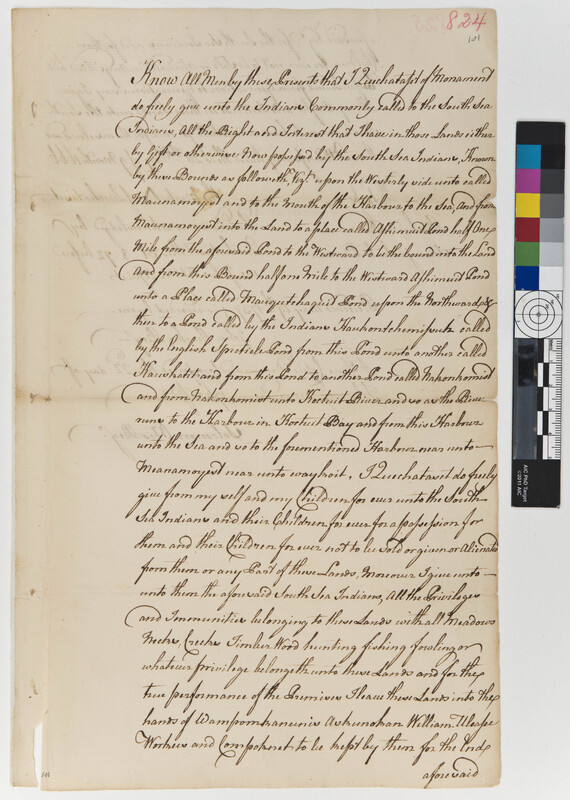 824
101
Know All Men by these Presents that I Quechatasit of Monament
do freely give unto the Indians Commonly called to the South Sea
Indians, All the Right and Interest that I have in those Lands either
by Gift or otherwise Now possessed by the South Sea Indians, Known
by these Bounds as followeth, Vizt upon the Westerly side unto called
Maunamoyest and to the Mouth of the Harbour to the Sea, and from
Maunamoyest into the Land to a place called Ashimuit Pond half One
Mile from the aforesaid Pond to the Westward to be the bound into the Land
And from this Bound half one Mile to the Westward Ashimuit Pond
unto a Place called Mauquetchageed Pond upon the Northward, &
then to a Pond called by the Indians called
by the English Specticle Pond from this Pond unto another called
and from this Pond to another Pond called Nakonkomist
and from Nakonkomist unto Kotuit River and so as the River
runs to the Harbour in Kotuit Bay and from this Harbour
unto the Sea and so to the forementioned Harbour near unto
Meanamoyest near unto I Quechataset do freely
give from my self and my Children for ever unto the South
Sea Indians and their Children for ever for a possession for
them and their Children for ever not to be sold or given or Alienated
from them or any Part of these Lands, Moreover I give unto
unto them the aforesaid South Sea Indians, All the Privileges
and Immunities belonging to these Lands with all Meadows
Necks, Creeks Timber Wood hunting fishing fowling or
whatever privilege belongeth unto these Lands and for the
true performance of the Premises I leave these Lands into the
hands of William
and to be kept by them for the End
aforesaid
©2011 AIC
AIC PhD Target